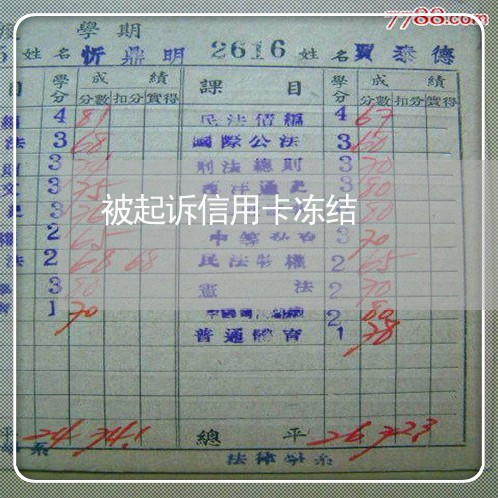 7788.com
學期
姓名 忻鼎明 2616 姓名 賈泰德
目 學分 成績 課目 學分 成績
分數 扣分 實得 分數 扣分 實得
4 81 民法債編 4 67
法 3 68 國際公法 3 60
3 刑法總則 3 70
3 75 西洋通史 3 80
3 80
被起诉信用卡冻结
2 65 3 70
法 2 68 68 民法物權 2 65
3 80 憲法 2 70
1 70 2 80
普通體育 1 78
平 24 74.1 總平 26 72.3
系 法律學系